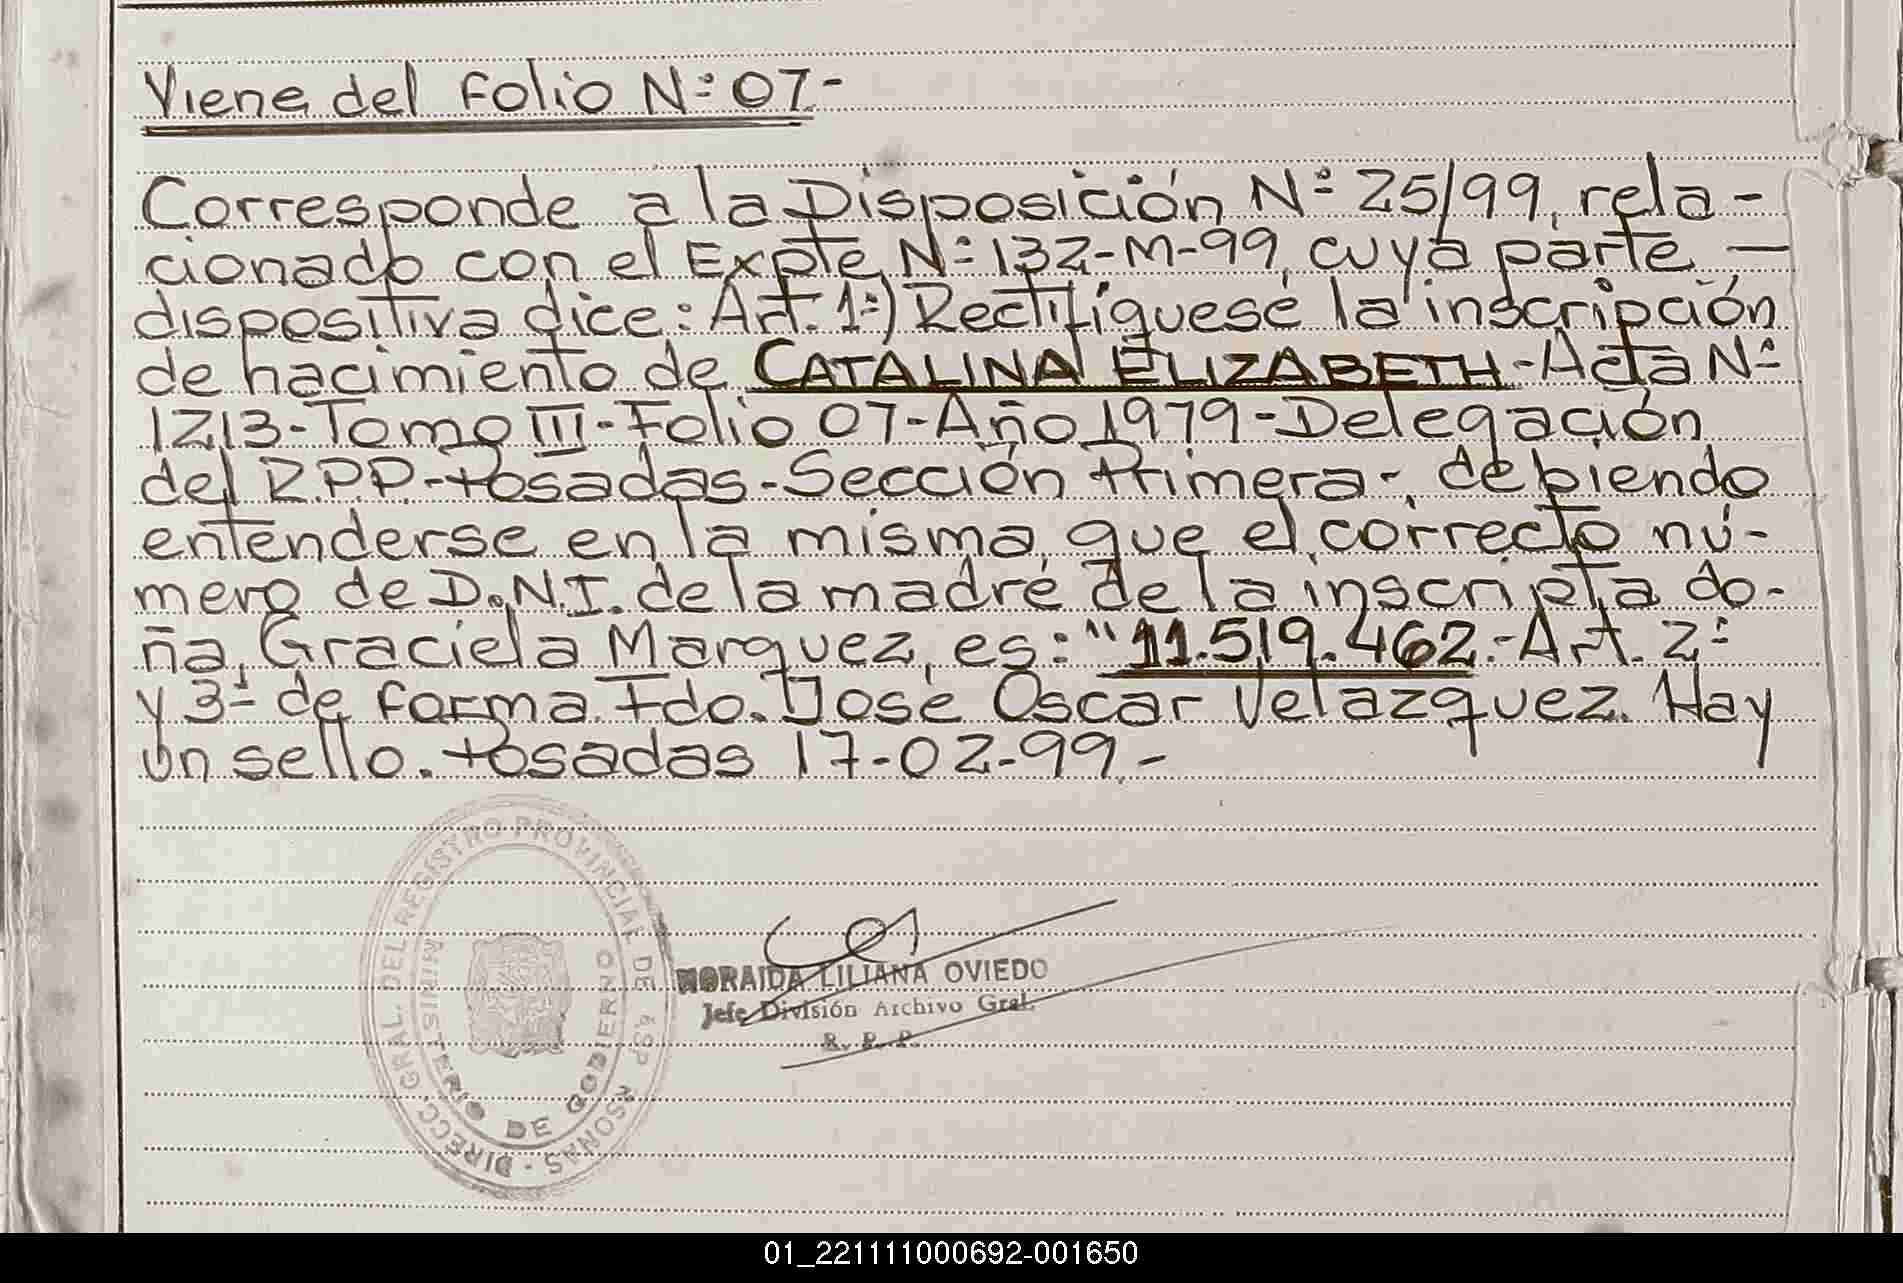 Viene del Folio Nº 07.-
Corresponde a la Disposición Nº 25/99, rela-
cionado con el Expte Nº 132-M-99, cuya parte —
dispositiva dice: Art. 1º) Rectifíquese la inscripción
de nacimiento de CATALINA ELIZABETH-Acta Nº
1213-Tomo III-Folio 07-Año 1979-Delegación
del R.P.P.-Posadas-Sección Primera-, debiendo
entenderse en la misma, que el correcto nú-
mero de D.N.I. de la madre de la inscripta do-
ña, Graciela Marquez, es: "11.519.462.-Art. 2º
y 3º de forma. Fdo. José Oscar Velazquez. Hay
un sello. Posadas 17-02-99.-
DIRECC. GRAL. DEL REGISTRO PROVINCIAL DE
PERSONAS
MINISTERIO DE GOBIERNO
NORAIDA LILIANA OVIEDO
Jefe División Archivo Gral.
R. P. P.
01_221111000692-001650